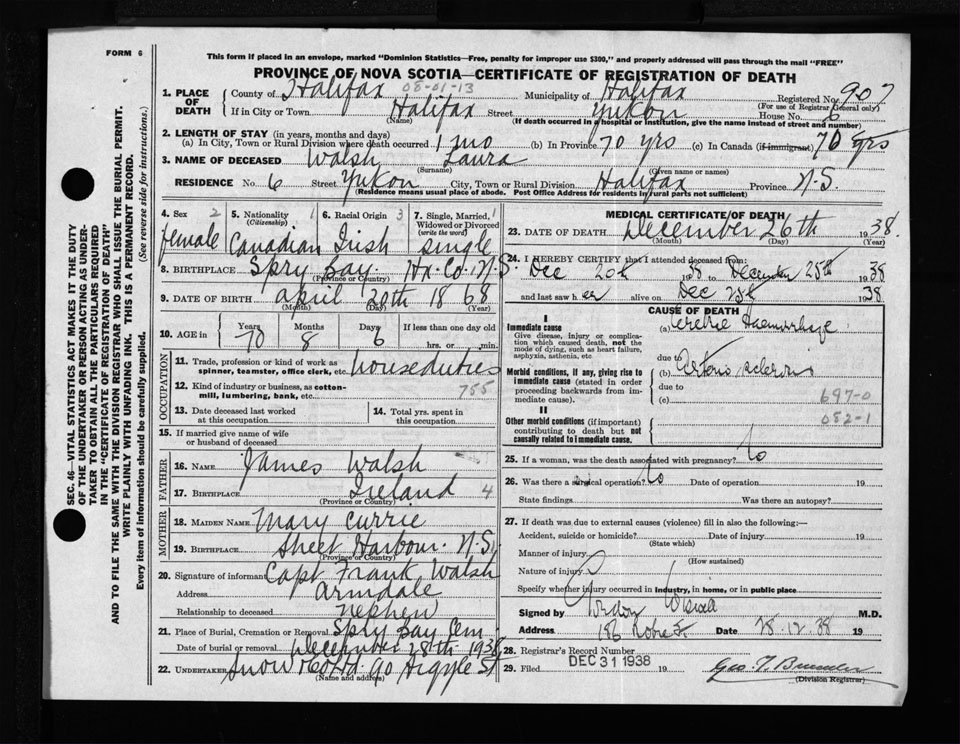 FORM 6
This form if placed in an envelope, marked "Dominion Statistics—Free, penalty for improper use $300," and properly addressed will pass through the mail "FREE"
PROVINCE OF NOVA SCOTIA—CERTIFICATE OF REGISTRATION OF DEATH
SEC. 46—VITAL STATISTICS ACT MAKES IT THE DUTY
OF THE UNDERTAKER OR PERSON ACTING AS UNDER-
TAKER TO OBTAIN ALL THE PARTICULARS REQUIRED
IN THE "CERTIFICATE OF REGISTRATION OF DEATH"
AND TO FILE THE SAME WITH THE DIVISION REGISTRAR WHO SHALL ISSUE THE BURIAL PERMIT.
WRITE PLAINLY WITH UNFADING INK. THIS IS A PERMANENT RECORD.
Every item of information should be carefully supplied. (See reverse side for instructions.)
1. PLACE OF DEATH
County of Halifax 08-01-13 Municipality of Halifax Registered No. 907
(For use of Registrar General only)
If in City or Town Halifax Street Yukon House No. 6
(Name) (If death occurred in a hospital or institution, give the name instead of street and number)
2. LENGTH OF STAY (in years, months and days)
(a) In City, Town or Rural Division where death occurred 1 mo (b) In Province 70 yrs (c) In Canada (if immigrant) 70 yrs
3. NAME OF DECEASED Walsh Laura
(Surname) (Given name or names)
RESIDENCE No. 6 Street Yukon City, Town or Rural Division Halifax Province N.S.
(Residence means usual place of abode. Post Office Address for residents in rural parts not sufficient)
4. Sex 2 5. Nationality 1 6. Racial Origin 3 7. Single, Married, 1
(Citizenship) Widowed or Divorced
(write the word)
female Canadian Irish single
8. BIRTHPLACE Spry Bay. Hx. Co. N.S.
(Province or Country)
9. DATE OF BIRTH april 20th 1868
(Month) (Day) (Year)
10. AGE in Years Months Days If less than one day old
70 8 6 hrs. or min.
OCCUPATION
11. Trade, profession or kind of work as
spinner, teamster, office clerk, etc. houseduties
12. Kind of industry or business, as cotton-
mill, lumbering, bank, etc. 755
13. Date deceased last worked
at this occupation
14. Total yrs. spent in
this occupation
15. If married give name of wife
or husband of deceased
FATHER
16. NAME James Walsh
17. BIRTHPLACE Ireland 4
(Province or Country)
MOTHER
18. MAIDEN NAME Mary Currie
19. BIRTHPLACE Sheet Harbour. N.S.
(Province or Country)
20. Signature of informant Capt Frank Walsh
Address Armdale
Relationship to deceased nephew
21. Place of Burial, Cremation or Removal Spry Bay Cem
Date of burial or removal December 28th 1938
22. UNDERTAKER Snow & Co Ltd. 90 Argyle St
(Name and address)
MEDICAL CERTIFICATE OF DEATH
23. DATE OF DEATH December 26th 1938.
(Month) (Day) (Year)
24. I HEREBY CERTIFY that I attended deceased from:
Dec 20th 1938 to December 25th 1938
and last saw her alive on Dec 25th 1938
CAUSE OF DEATH
I
Immediate cause
Give disease, injury or complica-
tion which caused death, not the
mode of dying, such as heart failure,
asphyxia, asthenia, etc
(a) Haemorrhage
due to
Morbid conditions, if any, giving rise to
immediate cause (stated in order
proceeding backwards from im-
mediate cause).
(b) Arterio sclerosis
due to
(c) 697-0
II
Other morbid conditions (if important)
contributing to death but not
causally related to immediate cause.
052-1
25. If a woman, was the death associated with pregnancy?
26. Was there a surgical operation? Date of operation 19
State findings Was there an autopsy?
27. If death was due to external causes (violence) fill in also the following:—
Accident, suicide or homicide? Date of injury 19
(State which)
Manner of injury
(How sustained)
Nature of injury
Specify whether injury occurred in industry, in home, or in public place
Signed by Gordon Wiswell M.D.
Address 186 Robie St. Date 28.12.38 19
28. Registrar's Record Number
29. Filed DEC 31 1938 19 Geo. T.
(Division Registrar)